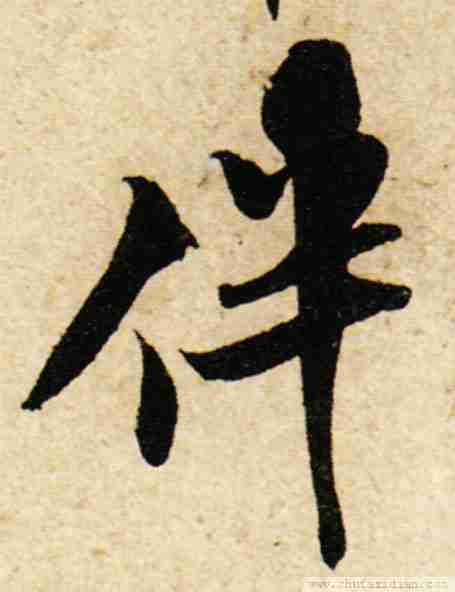 伴
www.shufazidian.com